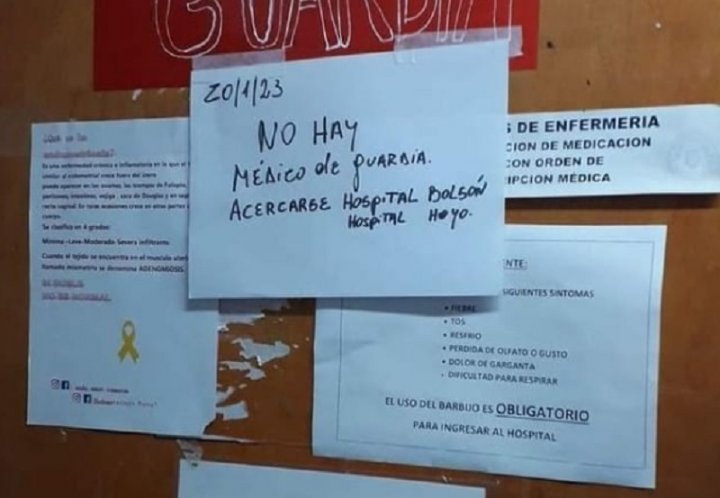 GUARDIA
20/1/23
NO HAY
MÉDICO de GUARDIA.
ACERCARSE HOSPITAL BOLSÓN
HOSPITAL HOYO.
S DE ENFERMERIA
CION DE MEDICACION
CON ORDEN DE
IPCION MÉDICA
Es una enfermedad crónica e inflamatoria en la que el
similar al endometrial crece fuera del útero
puede aparecer en los ovarios, las trompas de Falopio,
peritoneo, intestinos, vejiga, saco de Douglas y en
recto vaginal. En raras ocasiones crece en otras partes
cuerpo.
Se clasifica en 4 grados:
Mínima -Leve-Moderado-Severa infiltrante
Cuando el tejido se encuentra en el musculo
llamado miometrio se denomina ADENOMIOSIS.
SI DUELE
NO ES NORMAL
ENTE:
SIGUIENTES SINTOMAS
• FIEBRE
• TOS
• RESFRIO
• PERDIDA DE OLFATO O GUSTO
• DOLOR DE GARGANTA
• DIFICULTAD PARA RESPIRAR
EL USO DEL BARBIJO ES OBLIGATORIO
PARA INGRESAR AL HOSPITAL